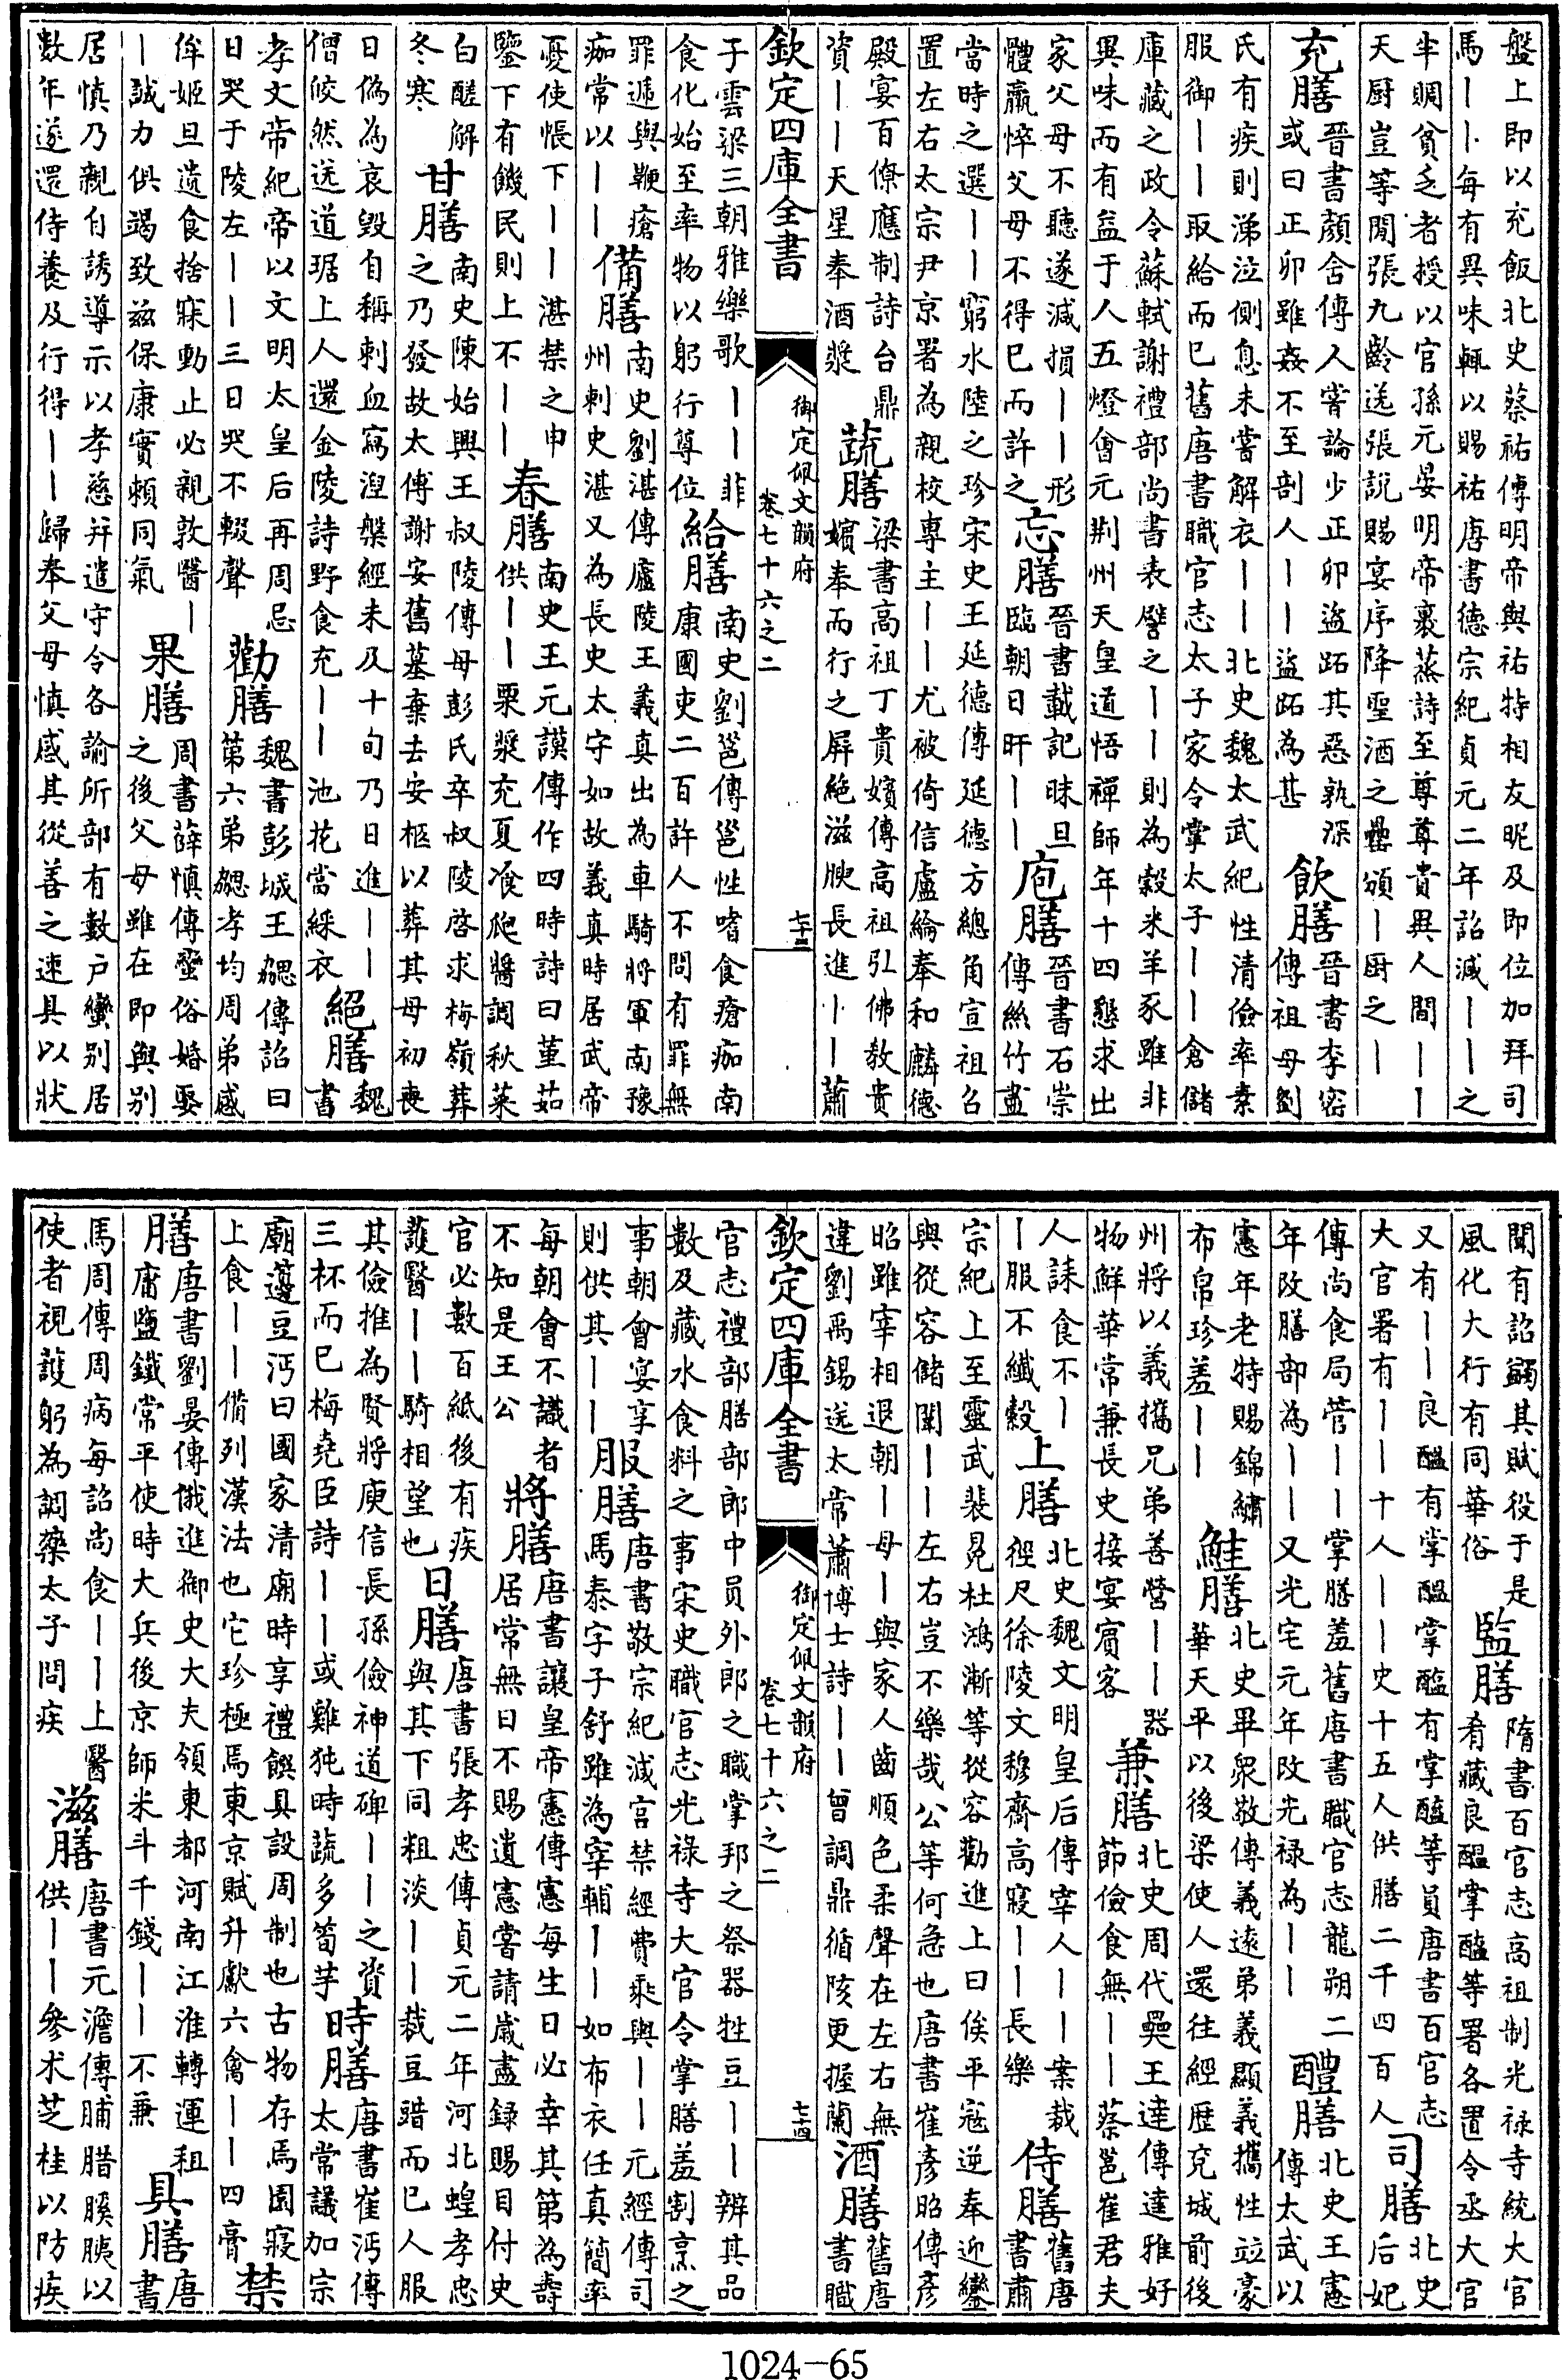 盤上即以充飯北史蔡祐傳明帝與祐特相友昵及即位加拜司
馬丨丨每有異味輒以賜祐唐書德宗紀貞元二年詔減丨丨之
半賙貧乏者授以官孫元晏明帝裹蒸詩至尊尊貴異人間丨丨
天厨豈等閒張九齡送張說賜宴序降聖酒之罍頒丨厨之丨
充膳
晉書顏含傳人嘗論少正卯盜跖其惡孰深
或曰正卯雖姦不至剖人丨丨盜跖為甚
飲膳
晉書李密
傳祖母劉
氏有疾則涕泣側息未嘗解衣丨丨北史魏太武紀性清儉率素
服御丨丨取給而已舊唐書職官志太子家令掌太子丨丨倉儲
庫藏之政令蘇軾謝禮部尚書表譬之丨丨則為穀米羊豕雖非
異味而有益于人五燈會元荆州天皇道悟禪師年十四懇求出
家父母不聽遂減損丨丨形
體羸悴父母不得已而許之
忘膳
晉書載記昧旦
臨朝日旰丨丨
庖膳
晉書石崇
傳絲竹盡
當時之選丨丨窮水陸之珍宋史王延德傳延德方總角宣祖召
置左右太宗尹京署為親校專主丨丨尤被倚信盧綸奉和麟德
殿宴百僚應制詩台鼎
資丨丨天星奉酒漿
蔬膳
梁書高祖丁貴嬪傳高祖引佛教貴
嬪奉而行之屏絕滋腴長進丨丨蕭
欽定四庫全書
御定佩文韻府
卷七十六之二
七十三
子雲梁三朝雅樂歌丨丨非
食化始至率物以躬行尊位
給膳
南史劉邕傳邕性嗜食瘡痂南
康國吏二百許人不問有罪無
罪遞與鞭瘡
痂常以丨丨
備膳
南史劉湛傳廬陵王義真出為車騎將軍南豫
州刺史湛又為長史太守如故義真時居武帝
憂使帳下丨丨湛禁之申
鑒下有饑民則上不丨丨
春膳
南史王元謨傳作四時詩曰堇茹
供丨丨粟漿充夏飡瓟醬調秋菜
白醝解
冬寒
甘膳
南史陳始興王叔陵傳母彭氏卒叔陵啓求梅嶺葬
之乃發故太傅謝安舊墓棄去安柩以葬其母初喪
日偽為哀毀自稱刺血寫涅槃經未及十旬乃日進丨丨
僧皎然送道琚上人還金陵詩野食充丨丨池花當綵衣
絕膳
魏
書
孝文帝紀帝以文明太皇后再周忌
日哭于陵左丨丨三日哭不輟聲
勸膳
魏書彭城王勰傳詔曰
第六弟勰孝均周弟感
侔姬旦遺食捨寐動止必親敦醫丨
丨誠力俱竭致兹保康實賴同氣
果膳
周書薛慎傳蠻俗婚娶
之後父母雖在即與别
居慎乃親自誘導示以孝慈并遣守令各諭所部有數户蠻别居
數年遂還侍養及行得丨丨歸奉父母慎感其從善之速具以狀
聞有詔蠲其賦役于是
風化大行有同華俗
監膳
隋書百官志高祖制光禄寺統大官
肴藏良醖掌醢等署各置令丞大官
又有丨丨良醖有掌醖掌醢有掌醢等員唐書百官志
大官署有丨丨十人丨丨史十五人供膳二千四百人
司膳
北史
后妃
傳尚食局菅丨丨掌膳羞舊唐書職官志龍朔二
年改膳部為丨丨又光宅元年改光禄為丨丨
醴膳
北史王憲
傳太武以
憲年老特賜錦繡
布帛珍羞丨丨
鮭膳
北史畢衆敬傳義遠弟義顯義攜性並豪
華天平以後梁使人還往經歷兗城前後
州將以義攜兄弟善營丨丨器
物鮮華常兼長史接宴賓客
兼膳
北史周代奰王達傳達雅好
節儉食無丨丨蔡邕崔君夫
人誄食不丨
丨服不纖縠
上膳
北史魏文明皇后傳宰人丨丨案裁
徑尺徐陵文穆齋高寢丨丨長樂
侍膳
舊唐
書肅
宗紀上至靈武裴冕杜鴻漸等從容勸進上曰俟平寇逆奉迎鑾
與從容儲闈丨丨左右豈不樂哉公等何急也唐書崔彦昭傳彦
昭雖宰相退朝丨母丨與家人齒順色柔聲在左右無
違劉禹錫送太常蕭博士詩丨丨曾調鼎循陔更握蘭
酒膳
舊唐
書職
欽定四庫全書
御定佩文韻府
卷七十六之二
七十四
官志禮部膳部郎中員外郎之職掌邦之祭器牲豆丨丨辨其品
數及藏水食料之事宋史職官志光祿寺大官令掌膳羞割烹之
事朝會宴享
則供其丨丨
服膳
唐書敬宗紀減宫禁經費乘輿丨丨元經傳司
馬泰字子舒雖為宰輔丨丨如布衣任真簡率
每朝會不識者
不知是王公
將膳
唐書讓皇帝憲傳憲每生日必幸其第為壽
居常無日不賜遺憲嘗請歲盡錄賜目付史
官必數百紙後有疾
護醫丨丨騎相望也
日膳
唐書張孝忠傳貞元二年河北蝗孝忠
與其下同粗淡丨丨裁豆䜺而已人服
其儉推為賢將庾信長孫儉神道碑丨丨之資
三杯而已梅堯臣詩丨丨或雞㹠時蔬多筍芋
時膳
唐書崔沔傳
太常議加宗
廟籩豆沔曰國家清廟時享禮饌具設周制也古物存焉園寢
上食丨丨備列漢法也它珍極焉東京賦升獻六禽丨丨四膏
禁膳
唐書劉晏傳俄進御史大夫領東都河南江淮轉運租
庸鹽鐵常平使時大兵後京師米斗千錢丨丨不兼
具膳
唐
書
馬周傳周病每詔尚食丨丨上醫
使者視護躬為調藥太子問疾
滋膳
唐書元澹傳脯腊膎胰以
供丨丨參术芝桂以防疾
1024-65